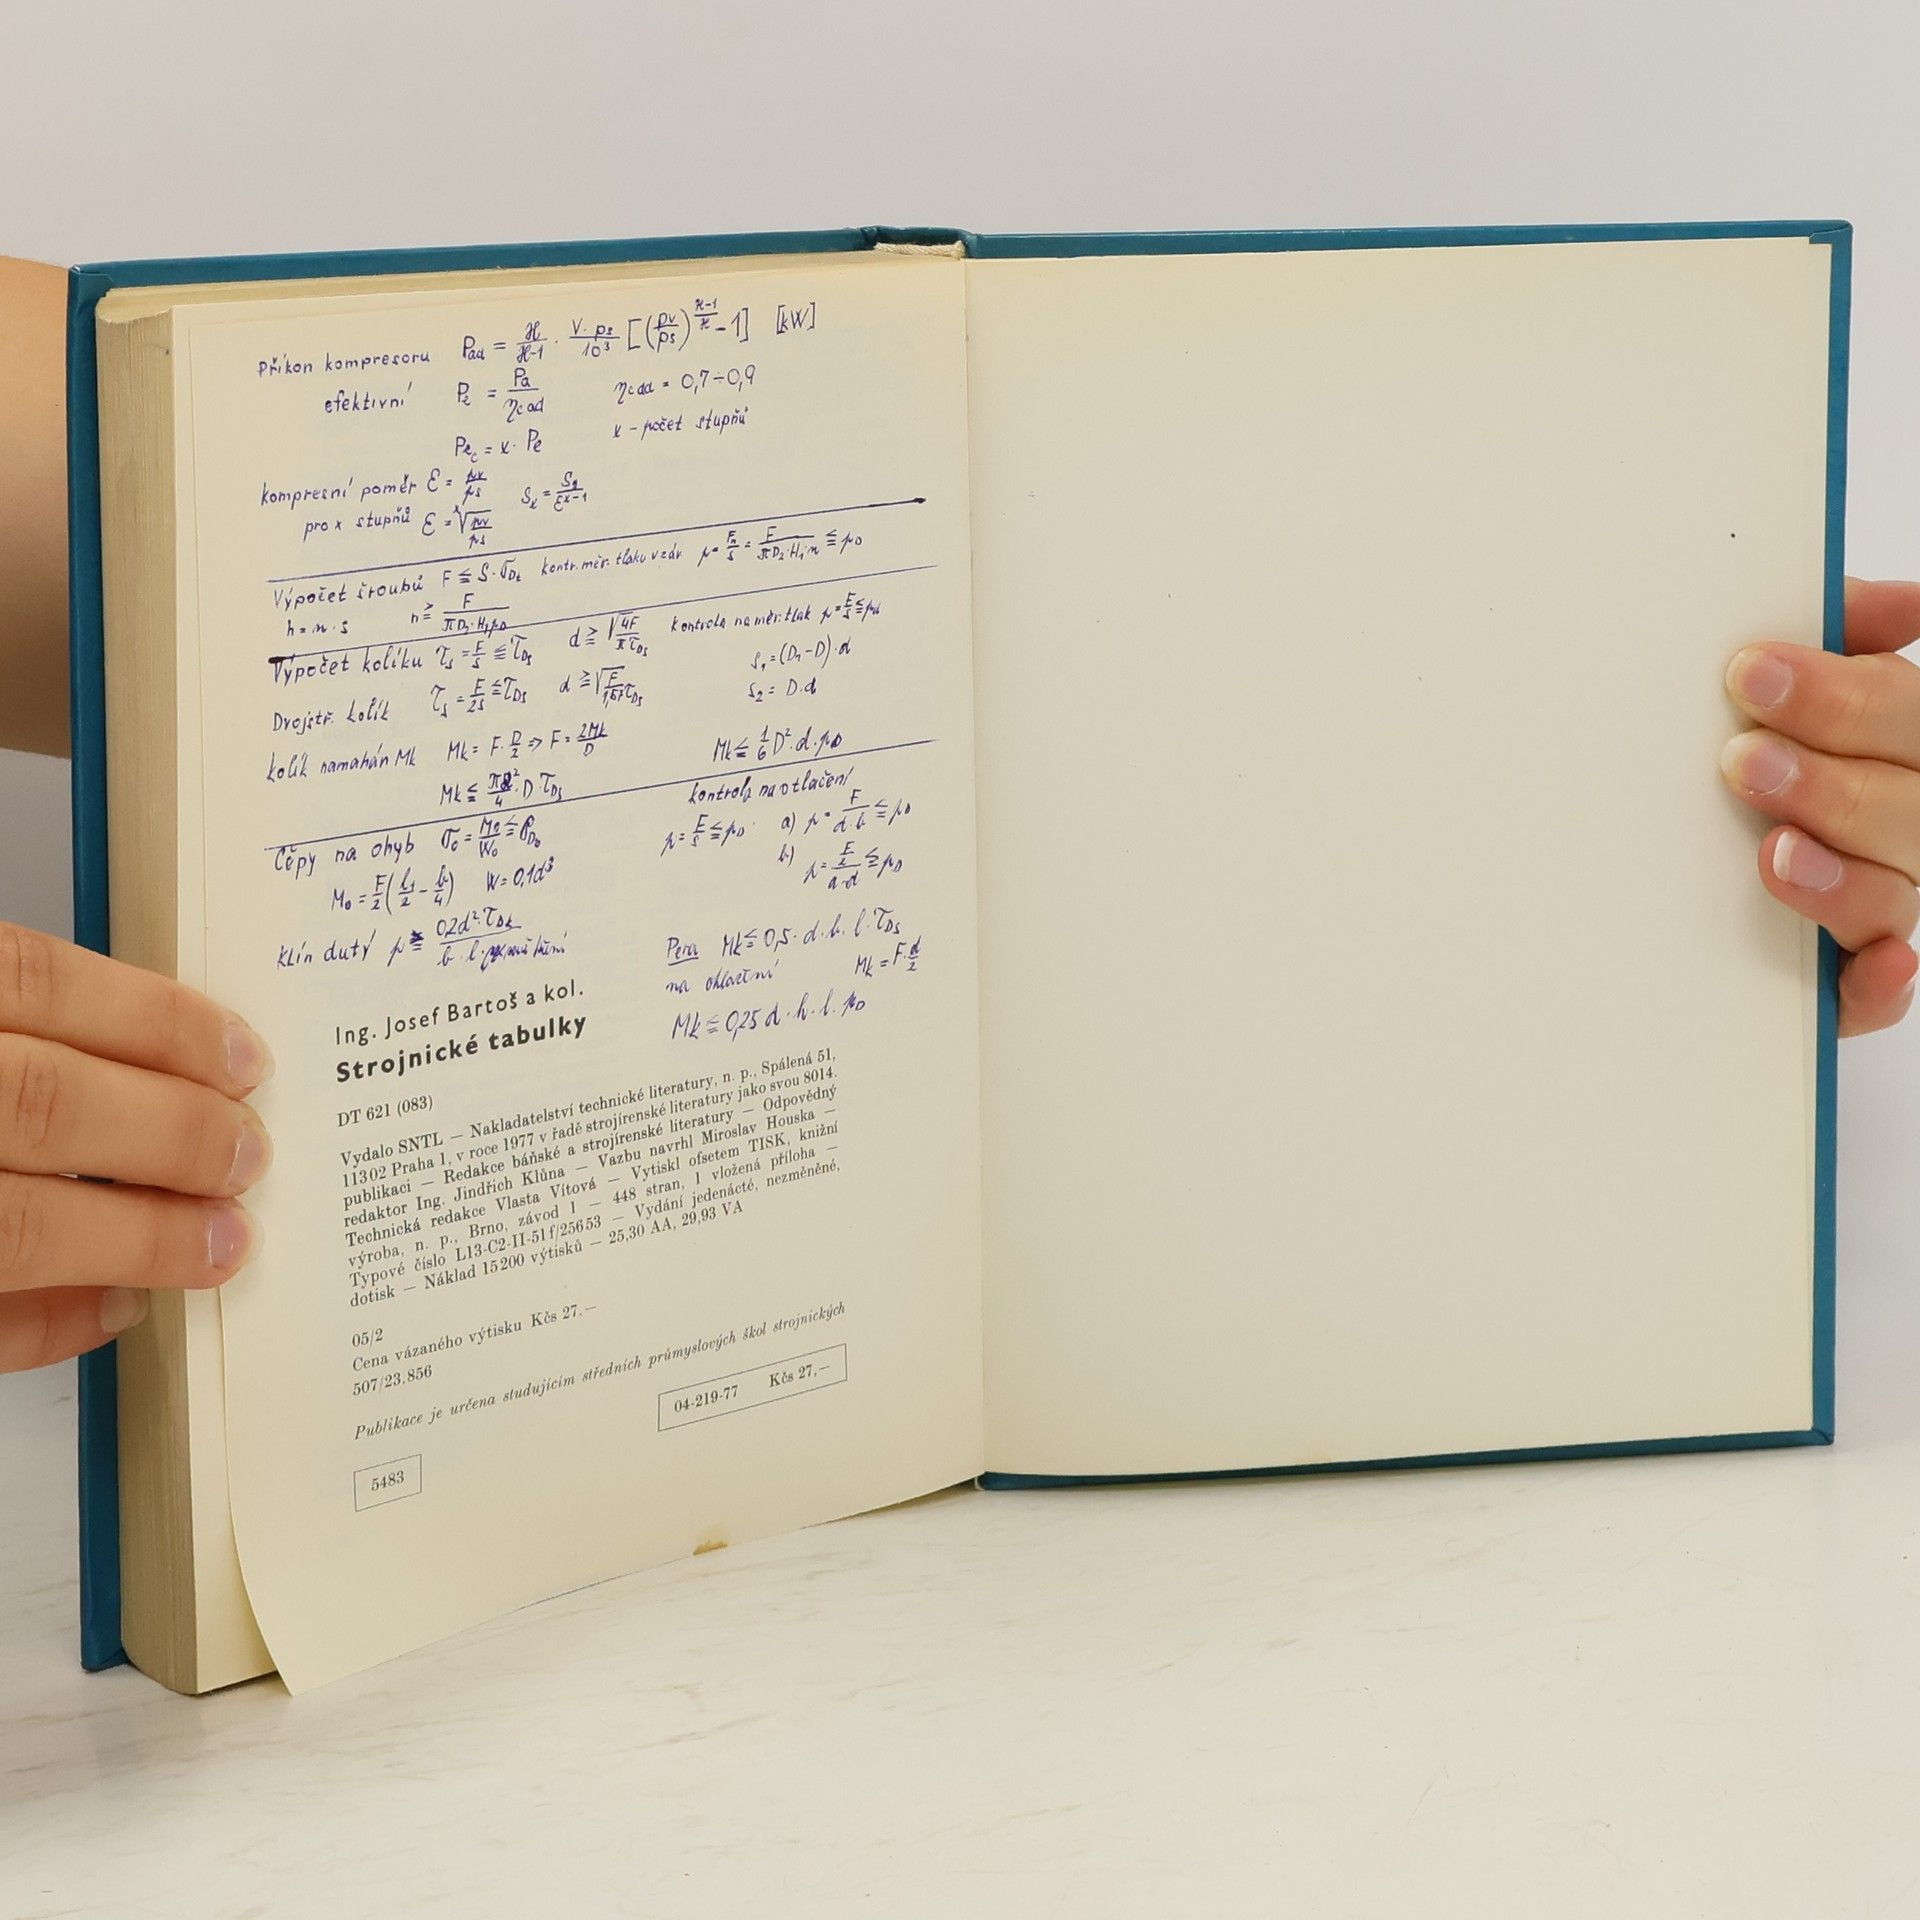 Příkon kompresoru Pad = ϰ/ϰ-1 · V·ps/10³ [(pv/ps)^(ϰ-1/ϰ) - 1] [kW]
efektivní Pe = Pa/ηcad ηcad = 0,7÷0,9
Pec = x · Pe x - počet stupňů
kompresní poměr ε = pv/ps Sx = S1/ε^(x-1)
pro x stupňů ε = ˣ√(pv/ps)
Výpočet šroubů F ≦ S·σDt kontr. měr. tlaku v záv. p = Fn/S = F/πD2·H1·n ≦ pD
h = n·s n ≧ F/πD2·H1pD
Výpočet kolíku τs = F/S ≦ τDs d ≧ √(4F/πτDs) kontrola na měr. tlak p = F/S ≦ pD
Dvojstř. kolík τs = F/2S ≦ τDs d ≧ √(F/1,57τDs) S1 = (D1-D)·d
S2 = D·d
kolík namahán Mk Mk = F·D/2 => F = 2Mk/D Mk ≦ 1/6 D²·d·pD
Mk ≦ πd²/4 · D·τDs
Čepy na ohyb σo = Mo/Wo ≦ σDo kontrola na otlačení
p = F/S ≦ pD a) p = F/d·b ≦ pD
Mo = F/2 (l1/2 - b/4) W = 0,1d³ b) p = F/2/a·d ≦ pD
Klín dutý p ≧ 0,2d²·τDk/b·l·
Pera Mk ≦ 0,5·d·h·l·τDs
na otlačení Mk = F·d/2
Mk ≦ 0,25 d·h·l·pD
Ing. Josef Bartoš a kol.
Strojnické tabulky
DT 621 (083)
Vydalo SNTL — Nakladatelství technické literatury, n. p., Spálená 51,
113 02 Praha 1, v roce 1977 v řadě strojírenské literatury jako svou 8014.
publikaci — Redakce báňské a strojírenské literatury — Odpovědný
redaktor Ing. Jindřich Klůna — Vazbu navrhl Miroslav Houska —
Technická redakce Vlasta Vítová — Vytiskl ofsetem TISK, knižní
výroba, n. p., Brno, závod 1 — 448 stran, 1 vložená příloha —
Typové číslo L13-C2-II-51f/25653 — Vydání jedenácté, nezměněné,
dotisk — Náklad 15 200 výtisků — 25,30 AA, 29,93 VA
05/2
Cena vázaného výtisku Kčs 27.—
507/23.856
Publikace je určena studujícím středních průmyslových škol strojnických
04-219-77 Kčs 27,—
5483